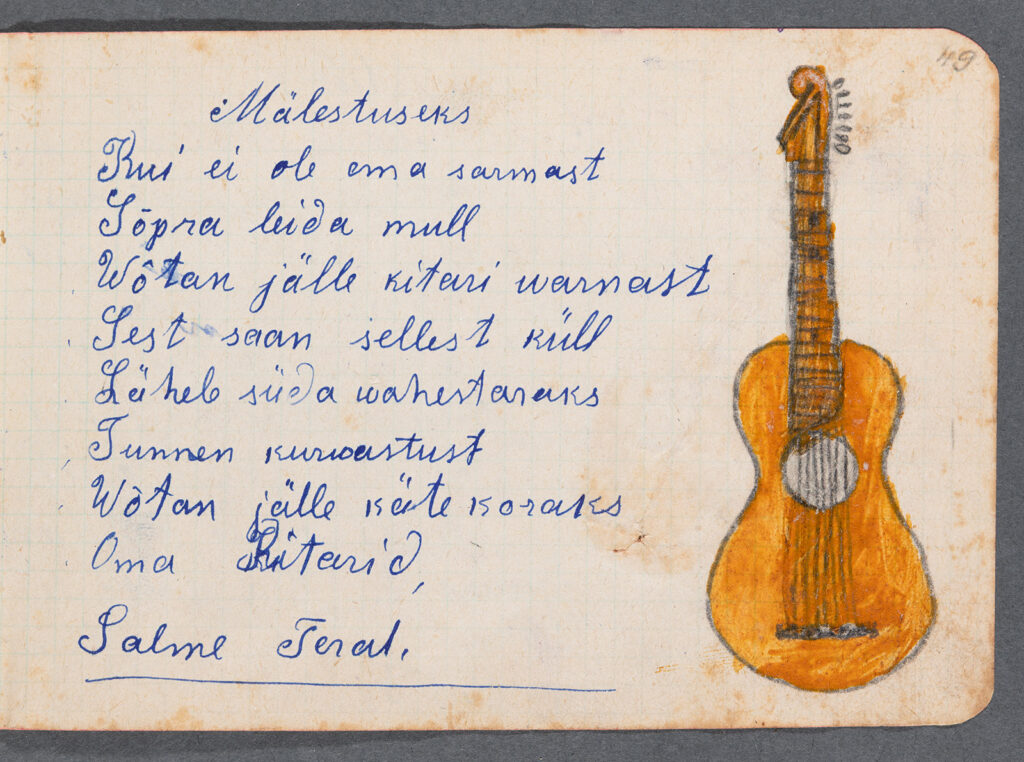 49
Mälestuseks
Kui ei ole oma sarmast
Sõpra leida mull
Wõtan jälle kitari warnast
Sest saan sellest küll
Läheb süda wahest araks
Tunnen kurwastust
Wõtan jälle käte koraks
Oma Kitarid,
Salme Teral.